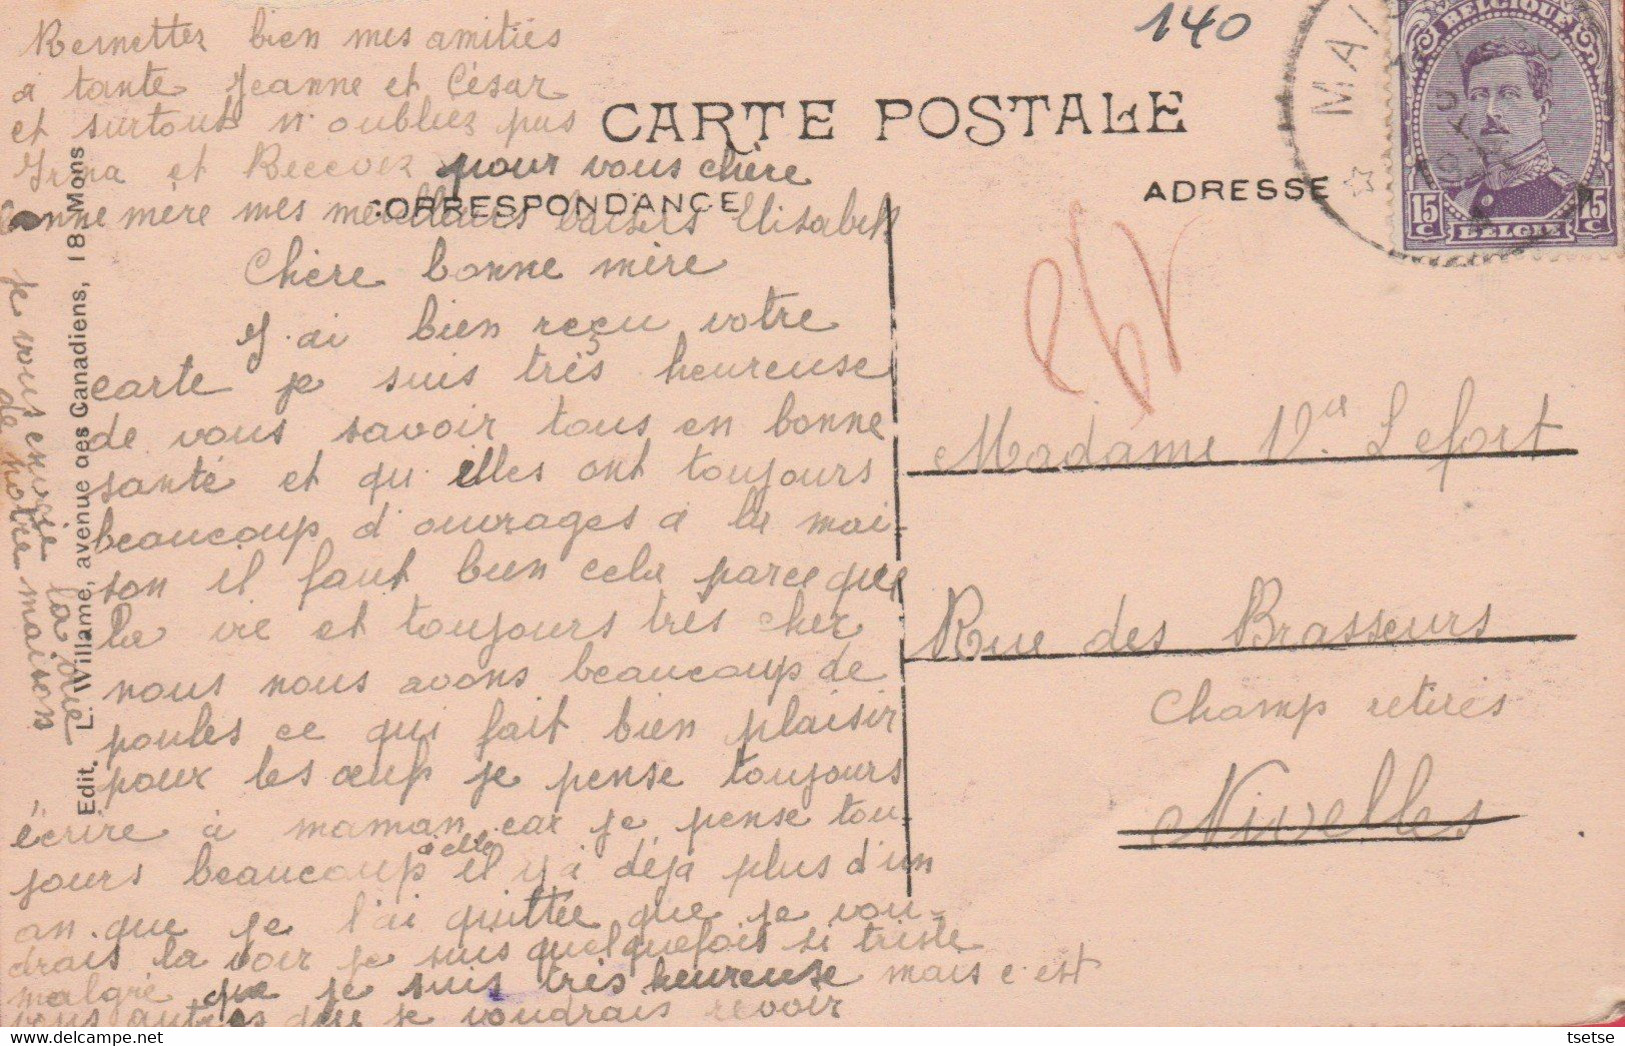 Remettez bien mes amitiés
a tante Jeanne et César
et surtout n'oubliez pas
Irma et Recevez pour vous chère
bonne mère mes meilleurs baisers Elisabeth
CARTE POSTALE
CORRESPONDANCE
ADRESSE
140
BELGIQUE
15 c
15 c
BELGIE
Chère bonne mère
J'ai bien reçu votre
carte je suis très heureuse
de vous savoir tous en bonne
santé et qu'elles ont toujours
beaucoup d'ouvrages a la mai-
son il faut bien cela parce que
la vie et toujours très cher
nous nous avons beaucoup de
poules ce qui fait bien plaisir
pour les œufs je pense toujours
écrire à maman car je pense tou-
jours beaucoup à elle il y a déja plus d'un
an que je l'ai quittée que je vou-
drais la voir je suis quelquefois si triste
malgré que je suis très heureuse mais c'est
vous autres que je voudrais revoir
je vous envoie la vue
de notre maison
Edit. L. Willame, avenue des Canadiens, 18 - Mons
Madame Vve Lefort
Rue des Brasseurs
Champ retires
Nivelles
tsetse